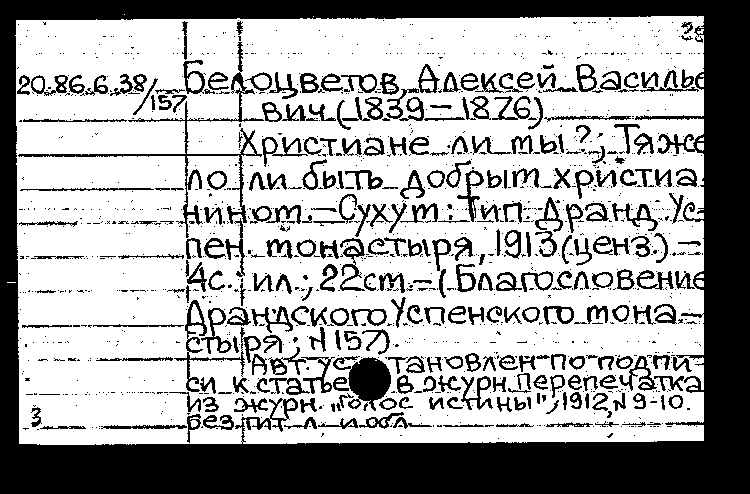 28
20.86.6.38/157
Белоцветов, Алексей Василье
вич (1839-1876)
Христиане ли мы?; Тяже
ло ли быть добрым христиа
нином. - Сухум: Тип. Дранд. Ус-
пен. монастыря, 1913 (ценз.). -
4с.: ил.; 22см. - (Благословение
Драндского Успенского мона-
стыря; N 157).
Авт. установлен по подпи-
си к статье в журн. Перепечатка
из журн. "Голос истины", 1912, N 9-10.
Без тит. л. и обл.
3